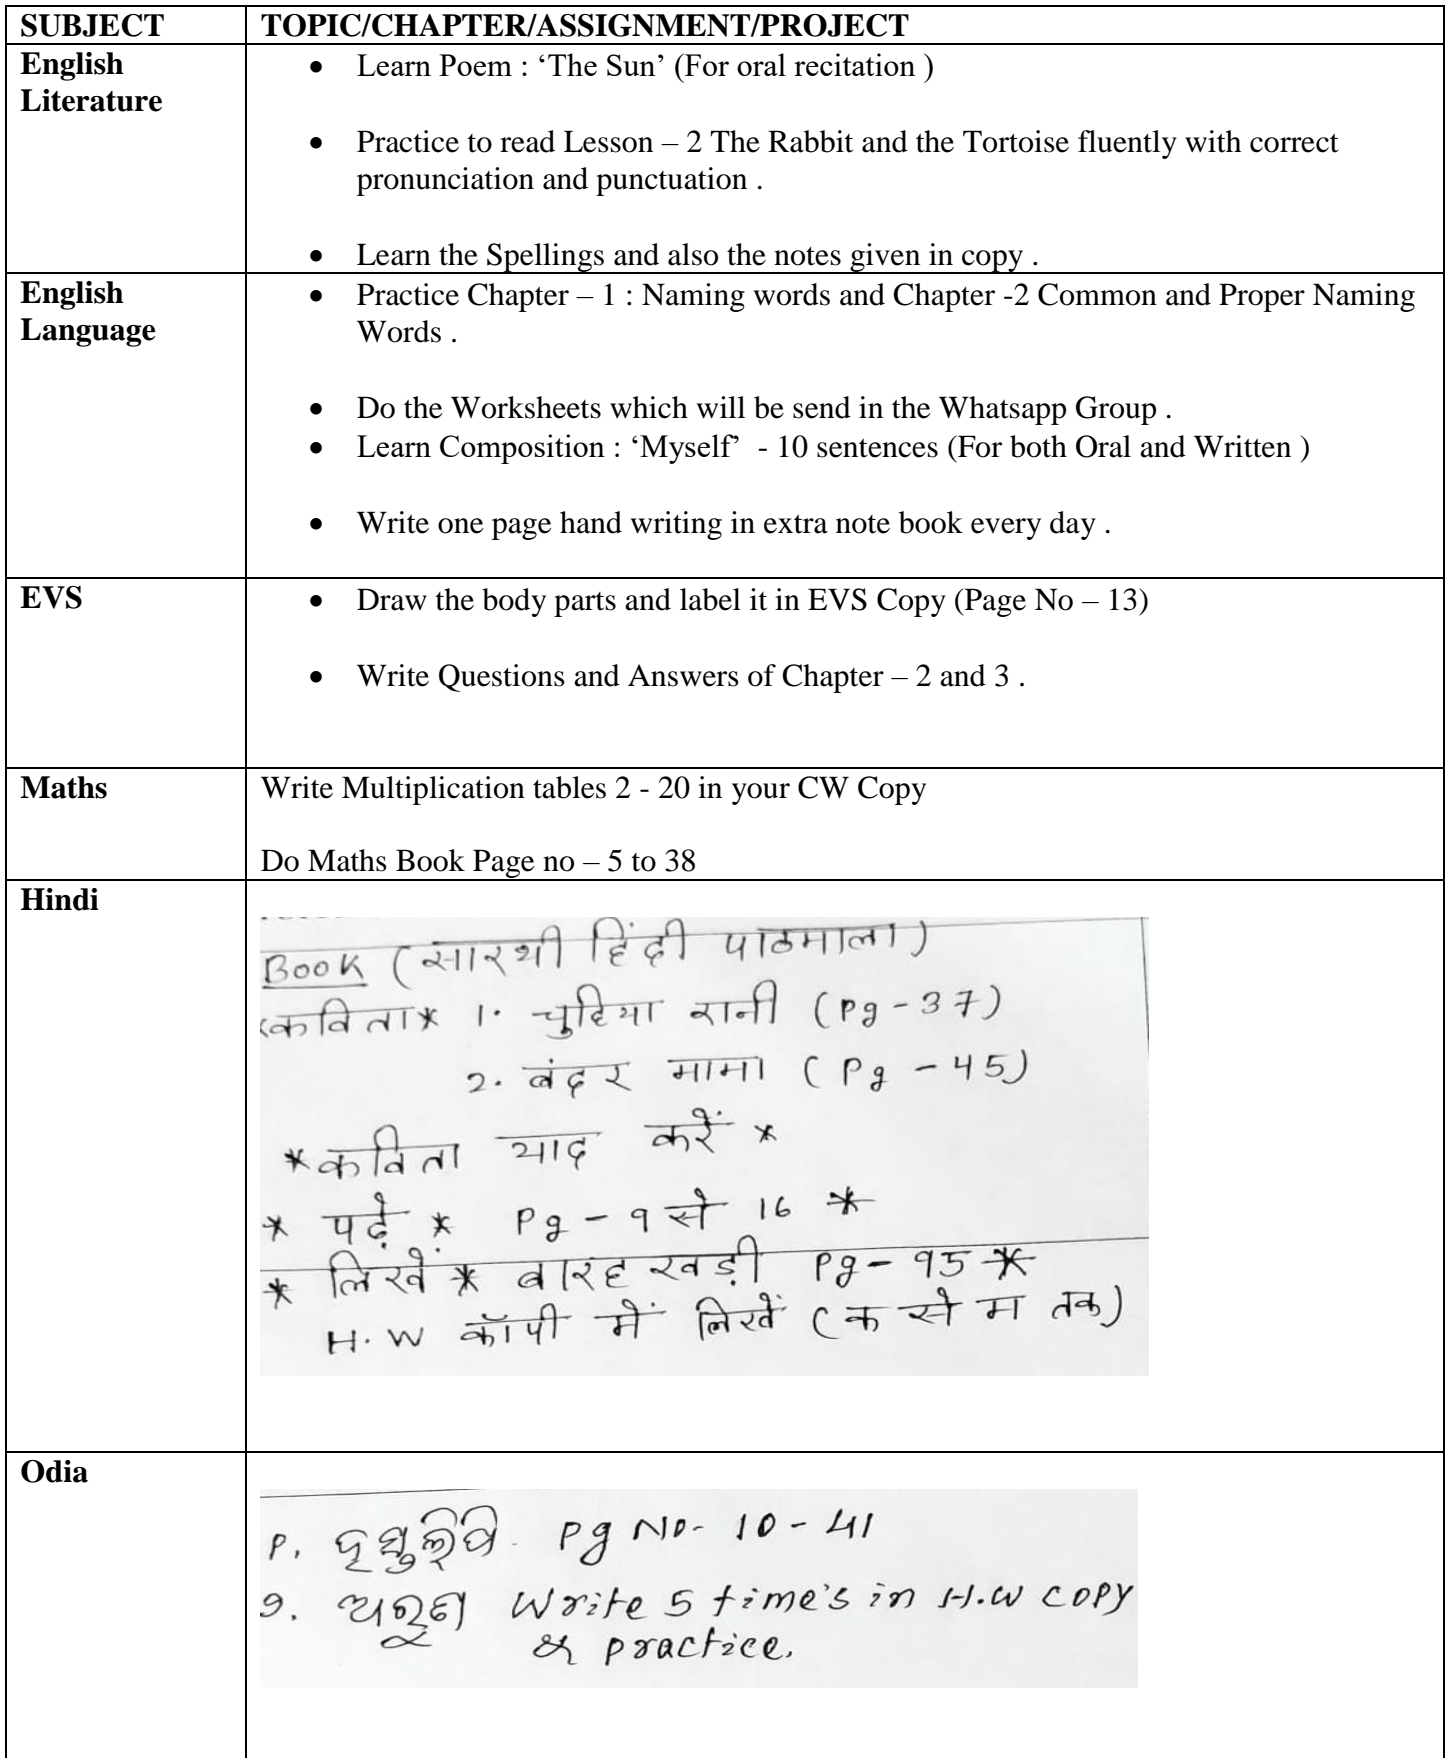 SUBJECT TOPIC/CHAPTER/ASSIGNMENT/PROJECT
English Literature
• Learn Poem : ‘The Sun’ (For oral recitation )
• Practice to read Lesson – 2 The Rabbit and the Tortoise fluently with correct
pronunciation and punctuation .
• Learn the Spellings and also the notes given in copy .
English Language
• Practice Chapter – 1 : Naming words and Chapter -2 Common and Proper Naming
Words .
• Do the Worksheets which will be send in the Whatsapp Group .
• Learn Composition : ‘Myself’ - 10 sentences (For both Oral and Written )
• Write one page hand writing in extra note book every day .
EVS
• Draw the body parts and label it in EVS Copy (Page No – 13)
• Write Questions and Answers of Chapter – 2 and 3 .
Maths
Write Multiplication tables 2 - 20 in your CW Copy
Do Maths Book Page no – 5 to 38
Hindi
Book (सारथी हिंदी पाठमाला)
कविता* 1. चुहिया रानी (Pg - 37)
2. बंदर मामा (Pg - 45)
*कविता याद करें *
* पढ़ें * Pg - 9 से 16 *
* लिखें * बारह खड़ी Pg - 95 *
H.W कॉपी में लिखें (क से म तक)
Odia
Pg No- 10 - 41
୨. ଅରୁଣ Write 5 time's in H.W copy
& practice.